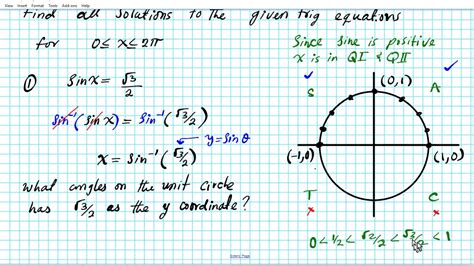 View Insert Format Tools Add-ons Help
Find all solutions to the given trig equations
for 0≤x≤2π
Since sine is positive
x is in QI & QII
① sin x = √3/2
sin⁻¹(sin x) = sin⁻¹(√3/2)
y=sinθ
x = sin⁻¹(√3/2)
what angles on the unit circle
has √3/2 as the y coordinate?
S
(0,1)
A
(-1,0)
(1,0)
T
C
0 < 1/2 < √2/2 < √3/2 < 1